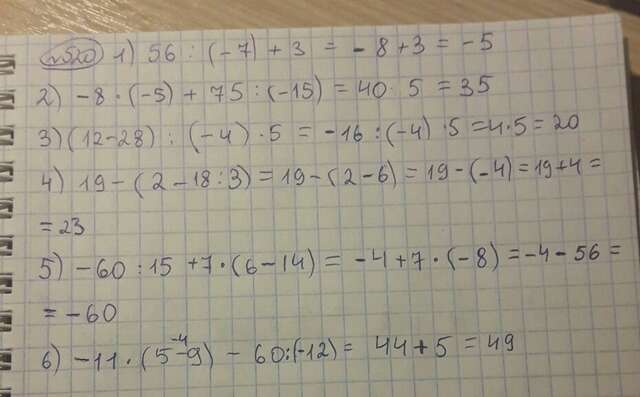 №520 1) 56 : (-7) + 3 = -8+3 = -5
2) -8 · (-5) + 75 : (-15) = 40 · 5 = 35
3) (12-28) : (-4) · 5 = -16 : (-4) · 5 = 4·5 = 20
4) 19 - (2 - 18:3) = 19 - (2-6) = 19 - (-4) = 19+4 =
= 23
5) -60 : 15 + 7 · (6-14) = -4+7 · (-8) = -4 - 56 =
= -60
-4
6) -11 · (5-9) - 60:(-12) = 44+5 = 49